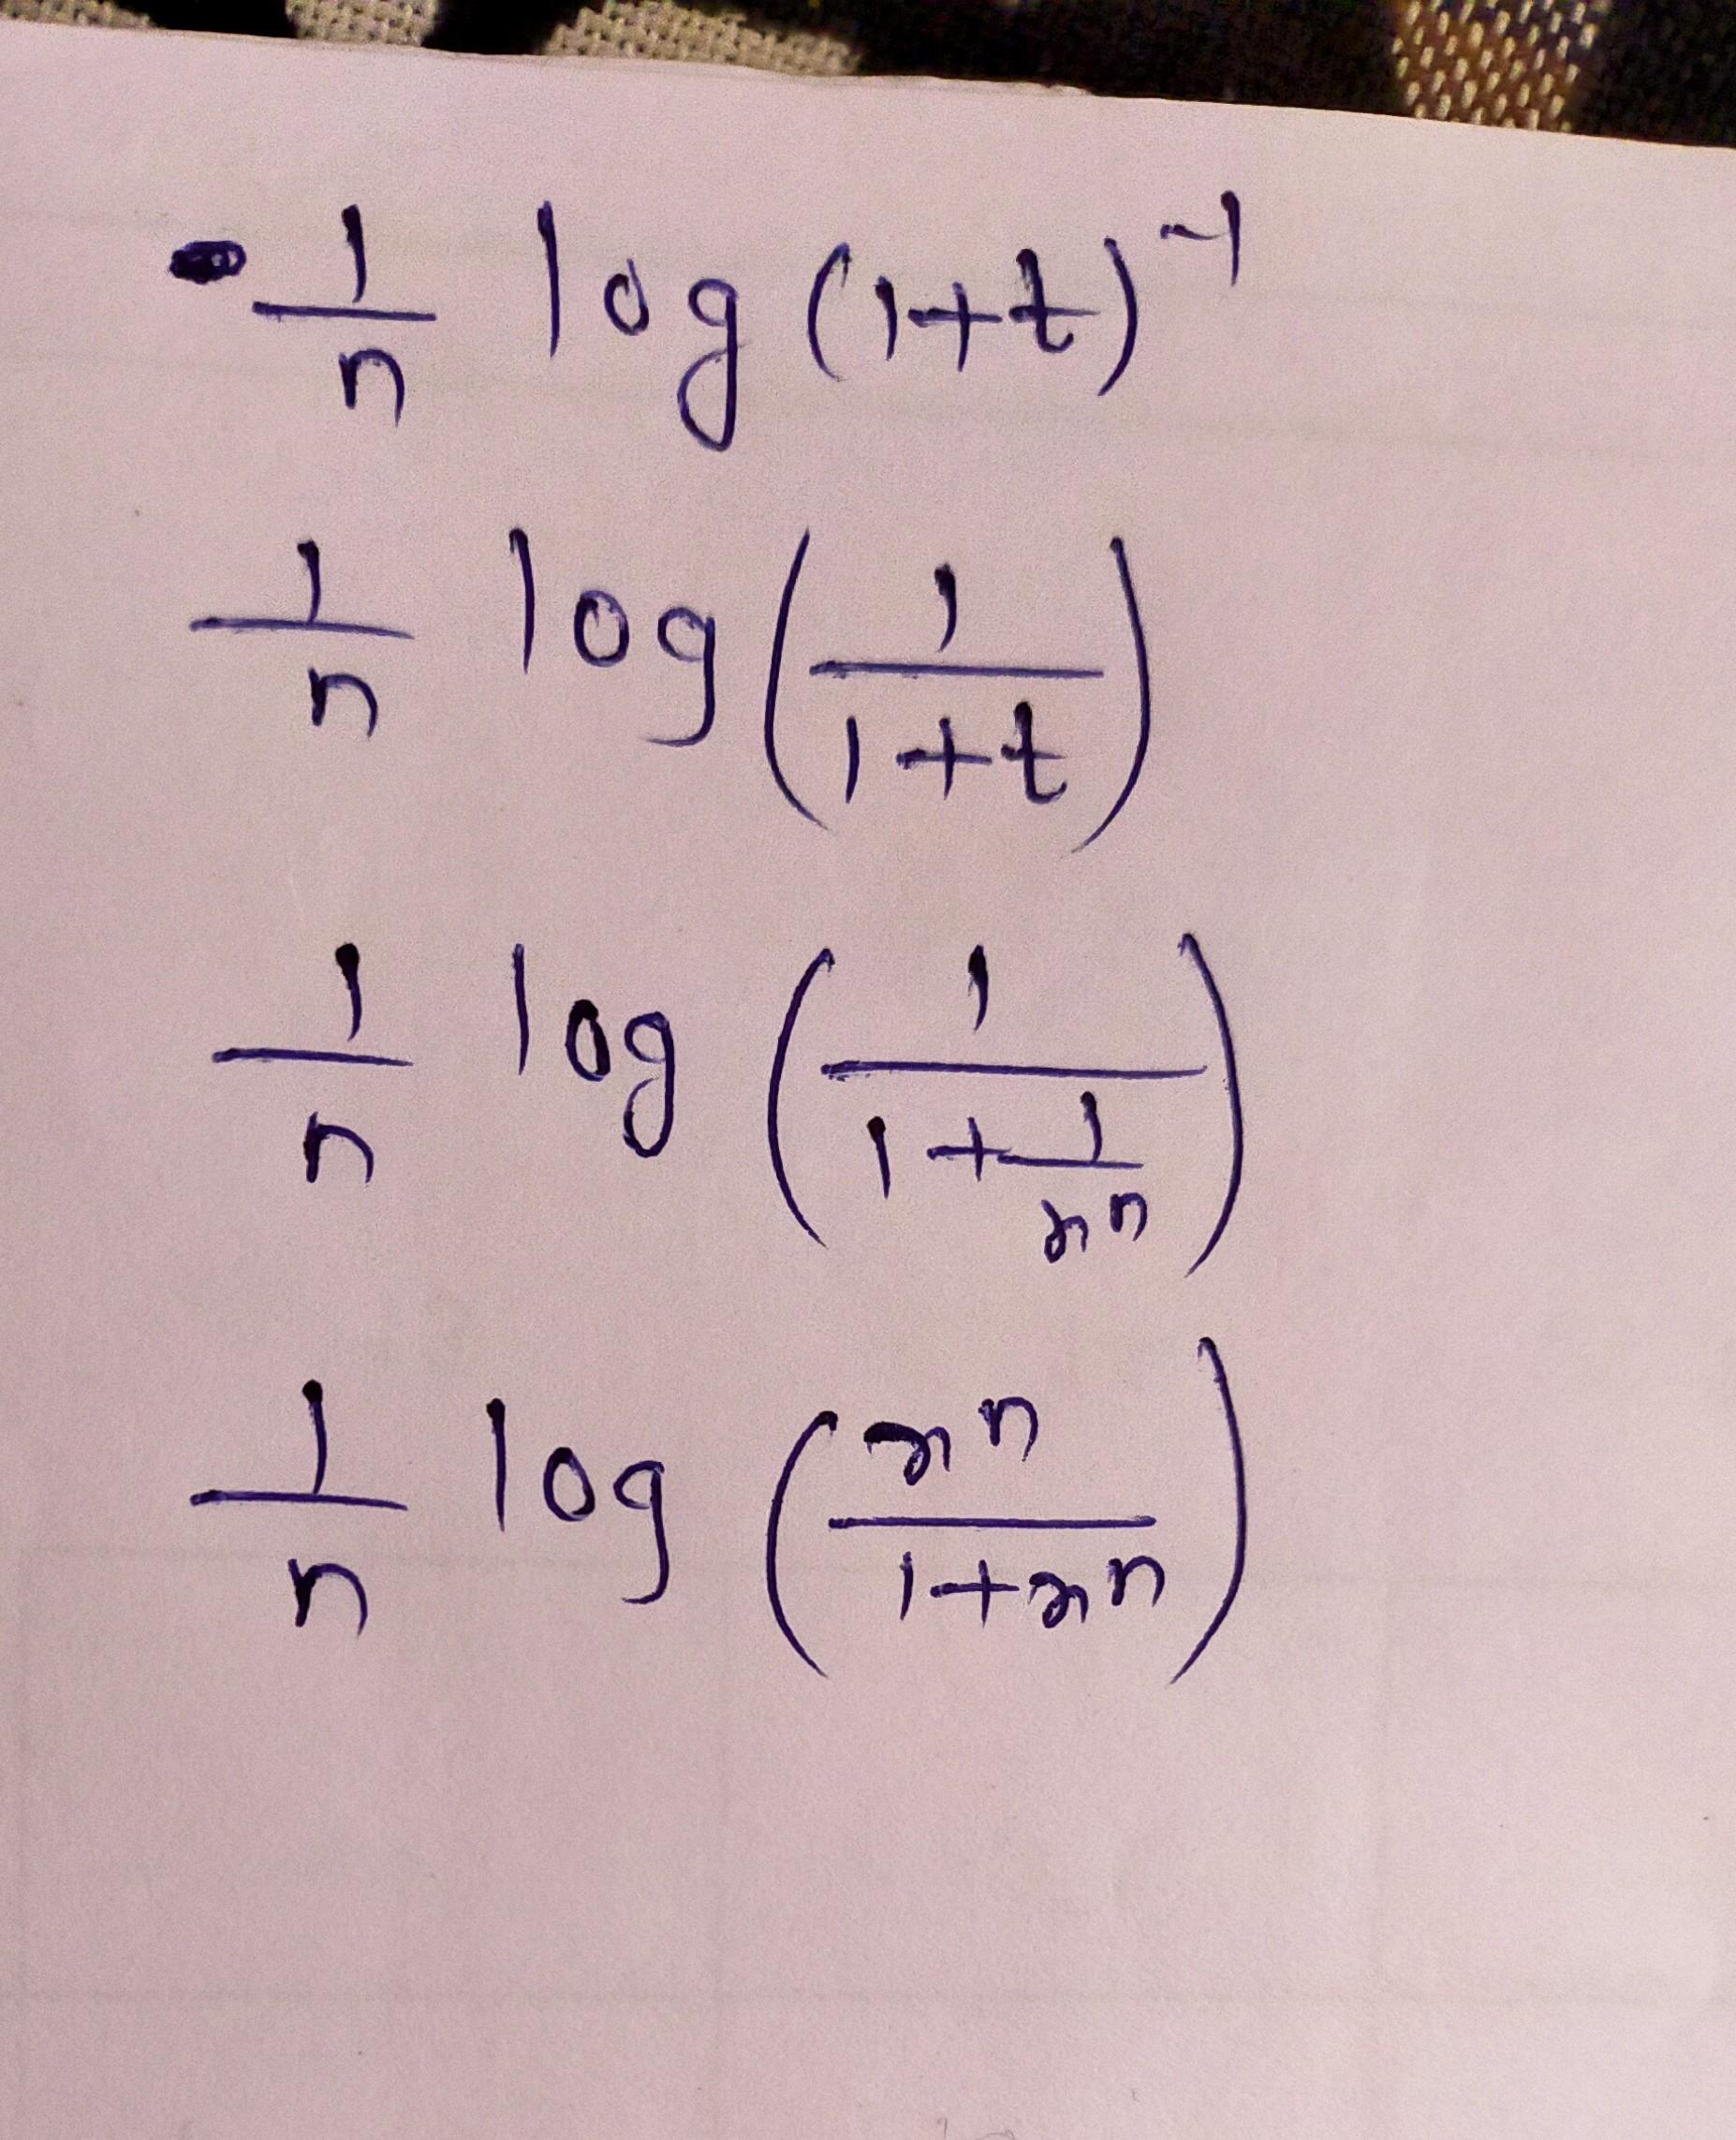 1/n log (1+t)^-1
1/n log (1/(1+t))
1/n log (1/(1+1/x^n))
1/n log (x^n/(1+x^n))